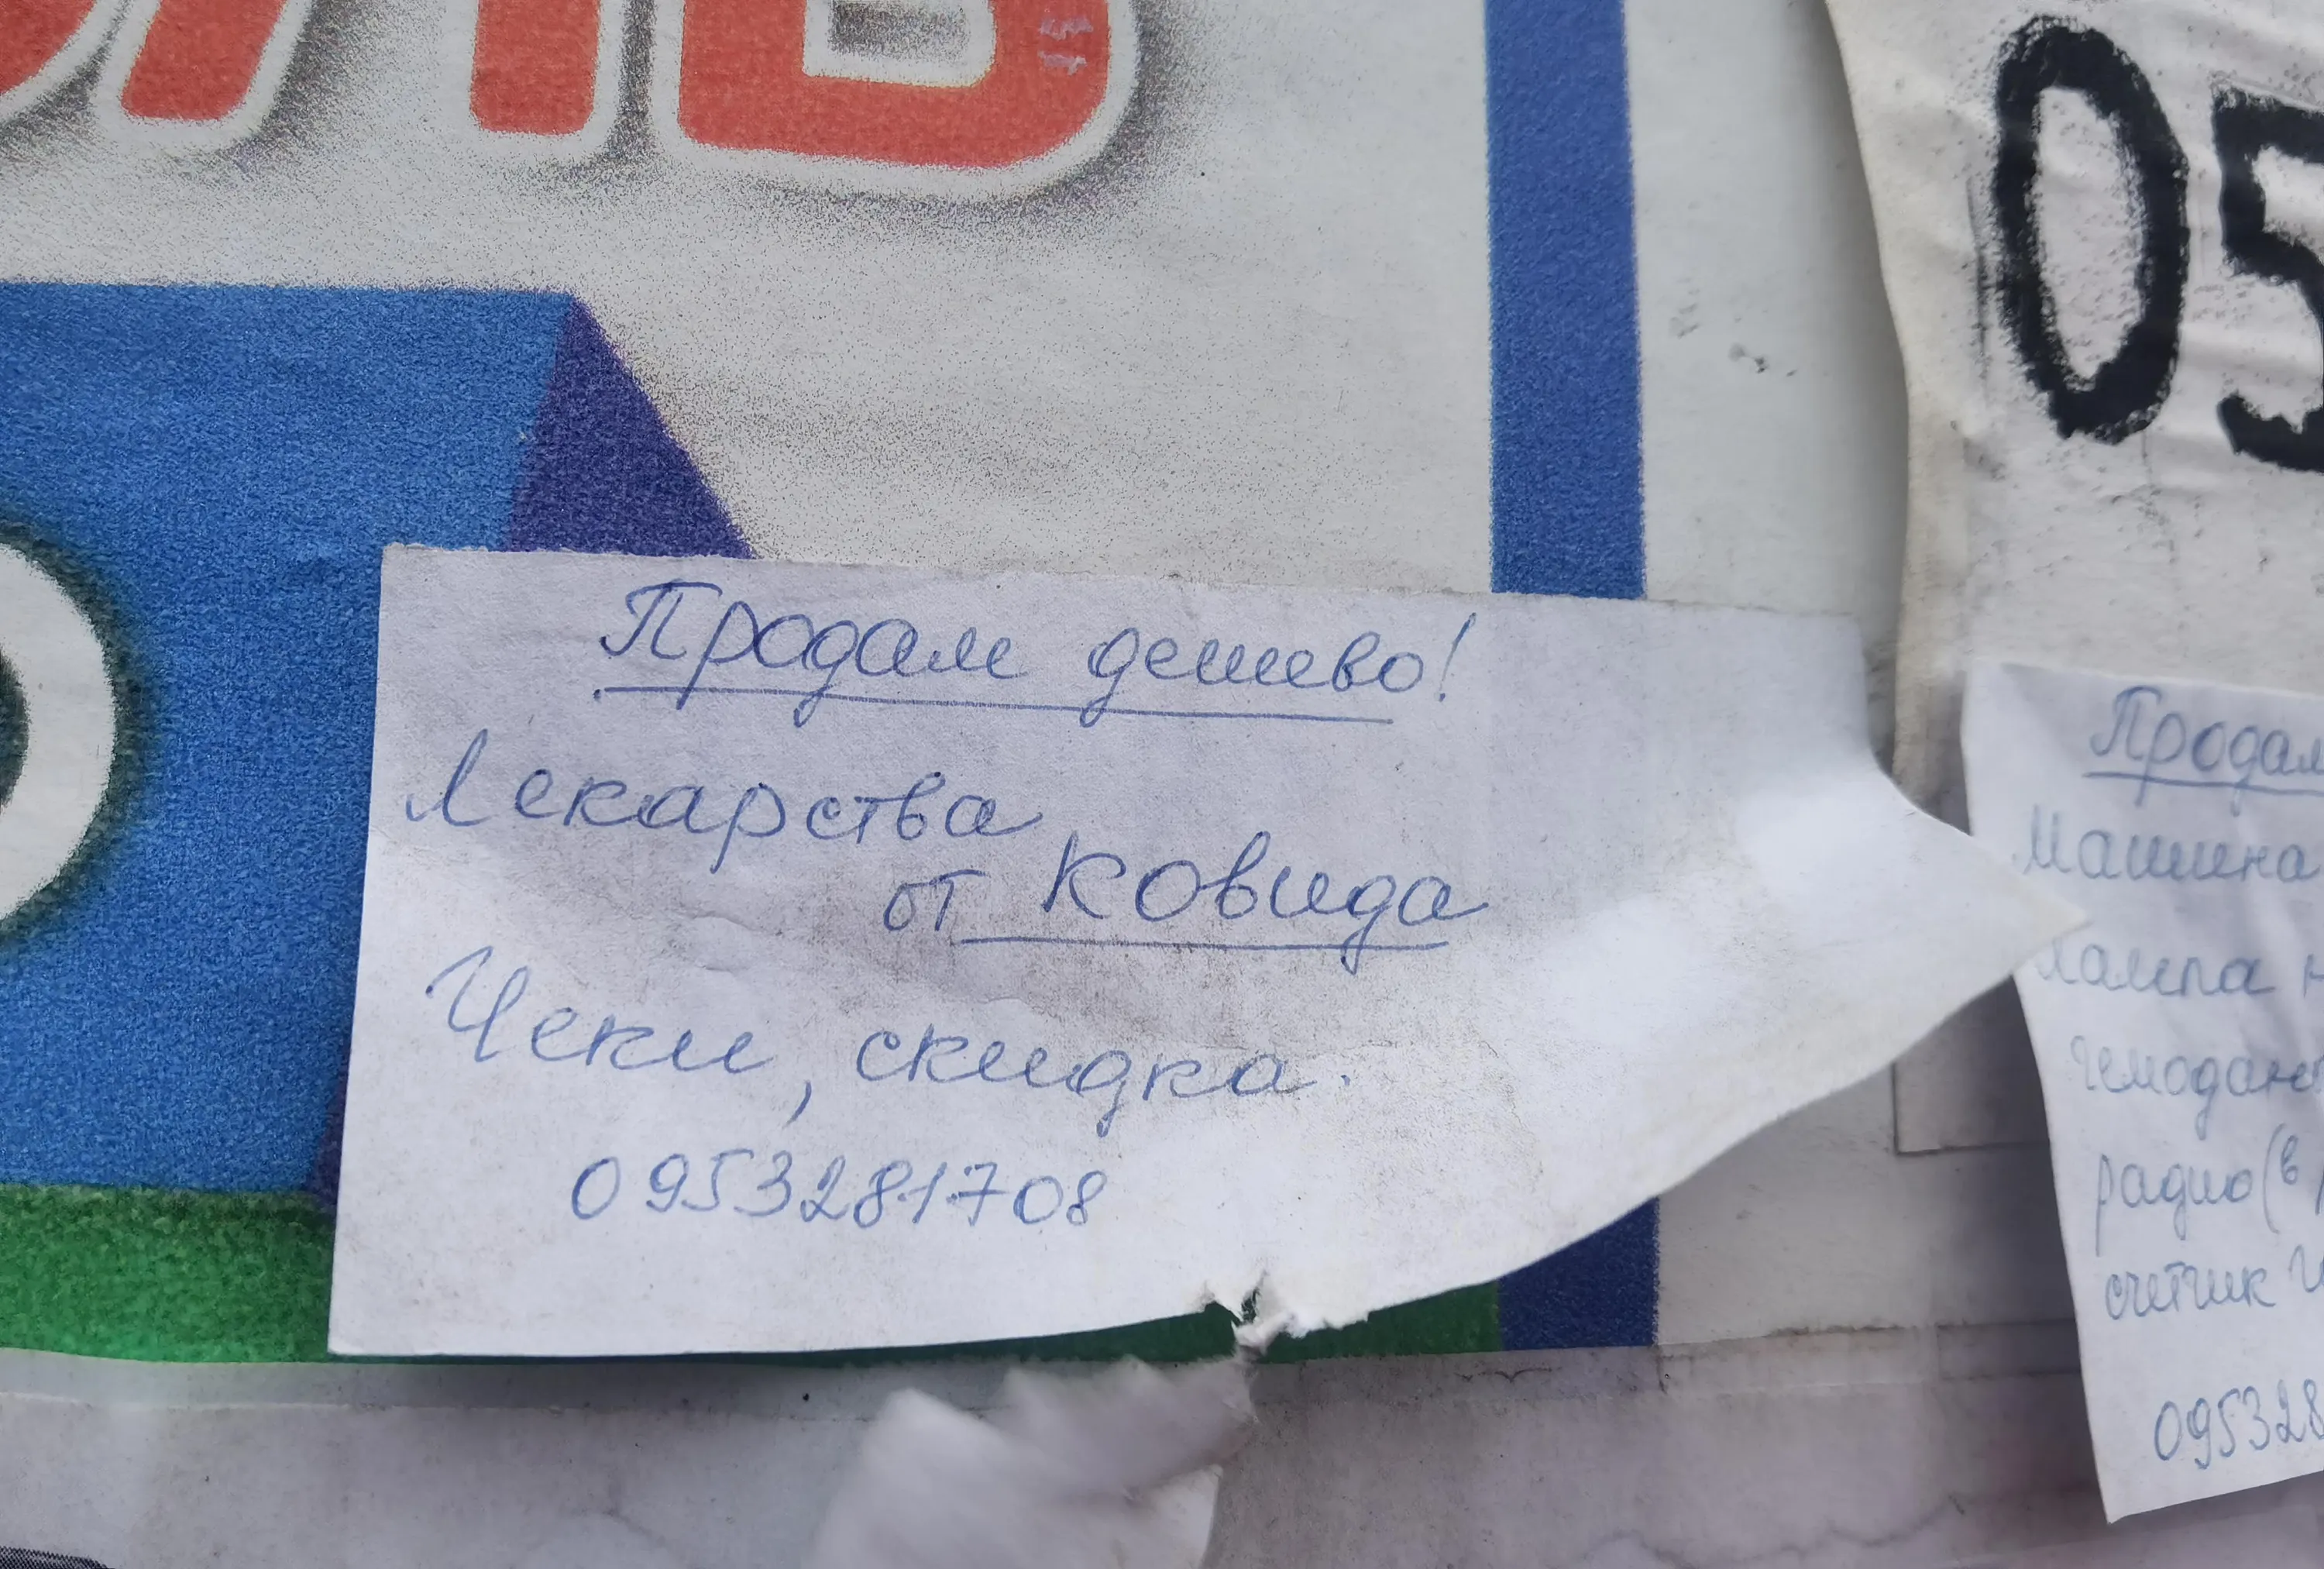 05
Продам дешево!
Лекарства
от Ковида
Чеки, скидка.
0953281708
Продам
Машина
Лампа
радио (в
счетчик